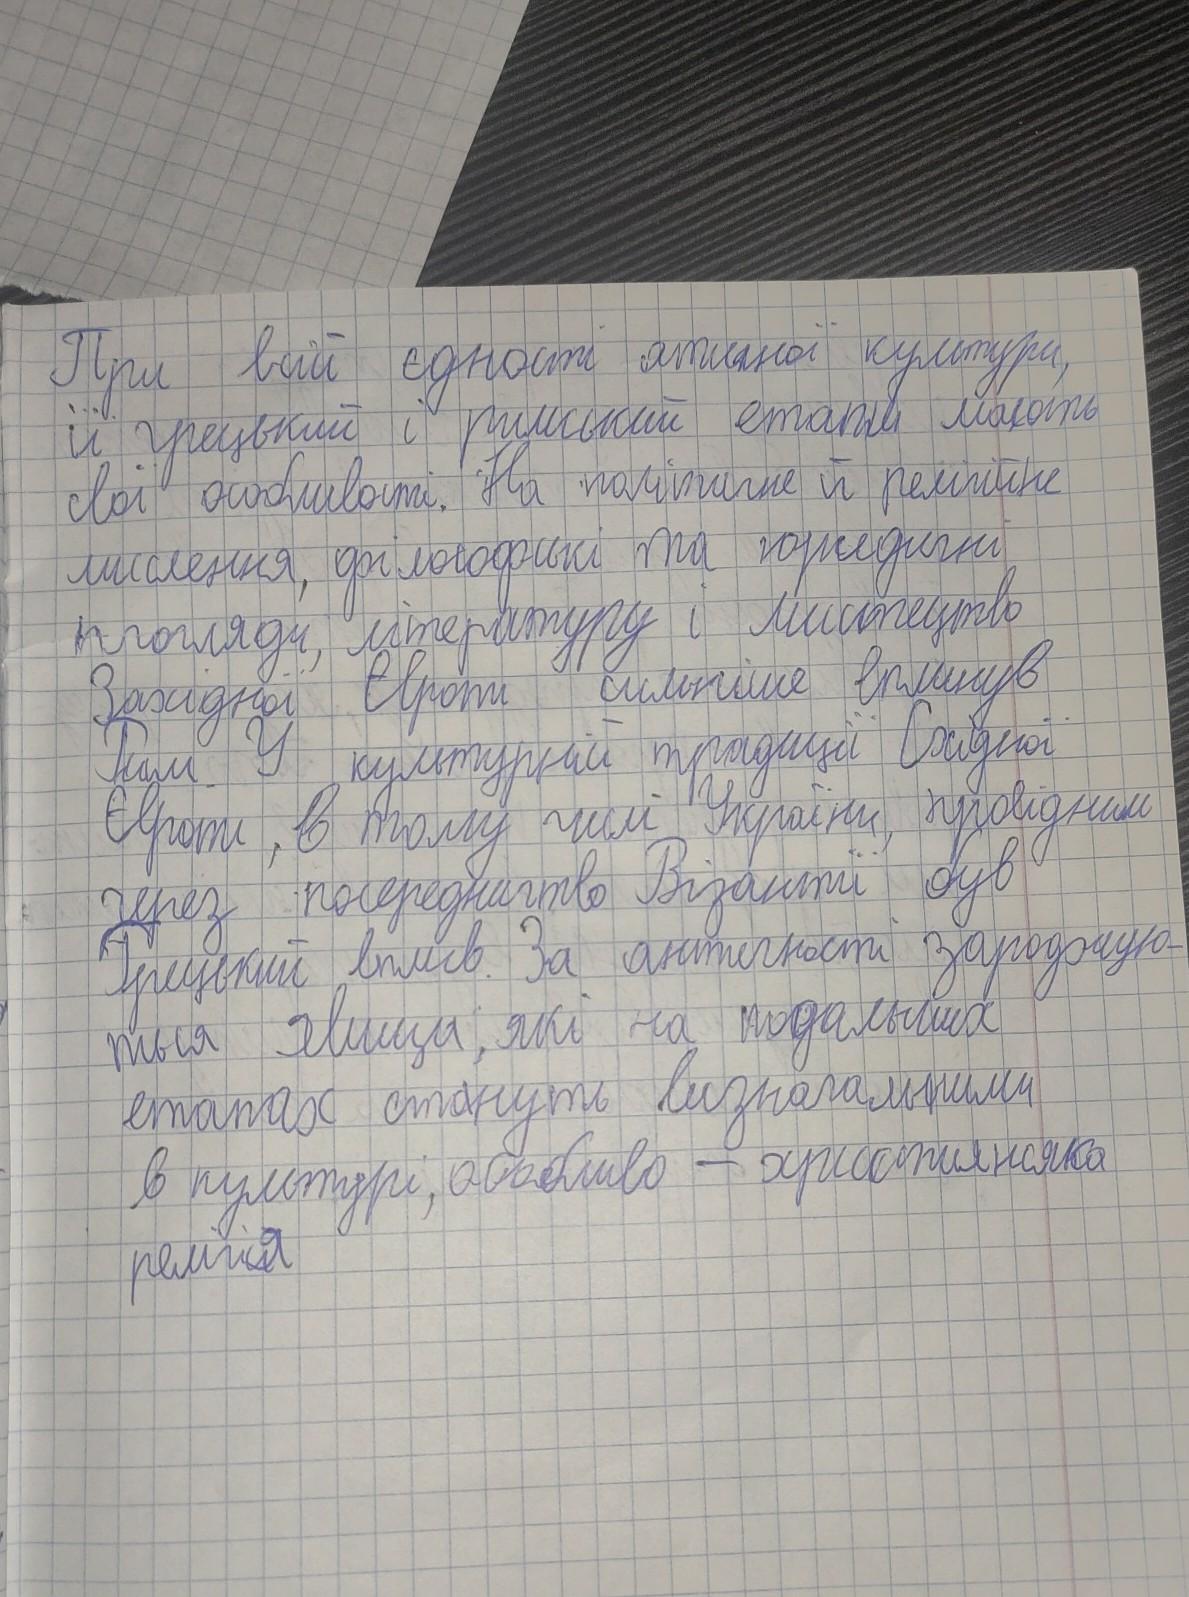 При всій єдності античної культури,
її грецький і римський етапи мають
свої особливості. На політичне й релігійне
мислення, філософські та юридичні
погляди, літературу і мистецтво
Західної Європи сильніше вплинув
Рим У культурній традиції Східної
Європи, в тому числі України, провідним
через посередництво Візантії був
Грецький вплив. За античності зароджую-
ться явища, які на подальших
етапах стануть визначальними
в культурі, особливо – християнська
релігія